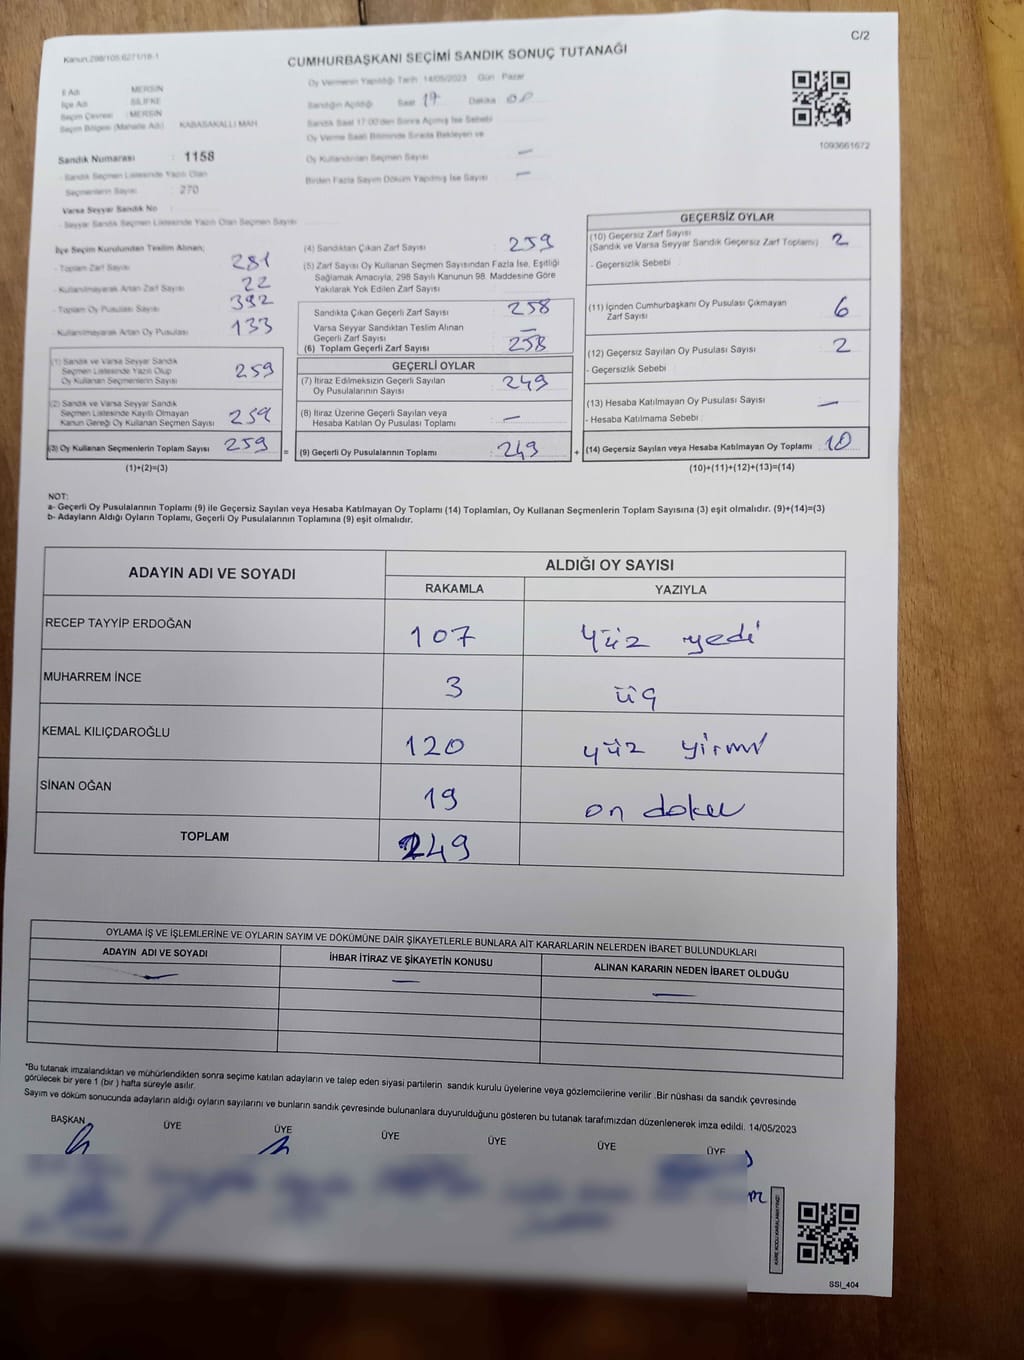 Kanun:298/105.6271/16-1
C/2
CUMHURBAŞKANI SEÇİMİ SANDIK SONUÇ TUTANAĞI
İl Adı : MERSİN
İlçe Adı : SİLİFKE
Seçim Çevresi : MERSİN
Seçim Bölgesi (Mahalle Adı) : KABASAKALLI MAH
Oy Vermenin Yapıldığı Tarih 14/05/2023 Gün Pazar
Sandığın Açıldığı Saat 17 Dakika 00
Sandık Saat 17:00'den Sonra Açılmış İse Sebebi
Oy Verme Saati Bitiminde Sırada Bekleyen ve
Oy Kullandırılan Seçmen Sayısı —
Birden Fazla Sayım Döküm Yapılmış İse Sayısı —
1093661672
Sandık Numarası : 1158
- Sandık Seçmen Listesinde Yazılı Olan
Seçmenlerin Sayısı : 270
Varsa Seyyar Sandık No
- Seyyar Sandık Seçmen Listesinde Yazılı Olan Seçmen Sayısı
İlçe Seçim Kurulundan Teslim Alınan;
- Toplam Zarf Sayısı 281
- Kullanılmayarak Artan Zarf Sayısı 22
- Toplam Oy Pusulası Sayısı 392
- Kullanılmayarak Artan Oy Pusulası 133
(1) Sandık ve Varsa Seyyar Sandık
Seçmen Listesinde Yazılı Olup
Oy Kullanan Seçmenlerin Sayısı 259
(2) Sandık ve Varsa Seyyar Sandık
Seçmen Listesinde Kayıtlı Olmayan
Kanun Gereği Oy Kullanan Seçmen Sayısı 259
(3) Oy Kullanan Seçmenlerin Toplam Sayısı 259
(1)+(2)=(3)
(4) Sandıktan Çıkan Zarf Sayısı 259
(5) Zarf Sayısı Oy Kullanan Seçmen Sayısından Fazla İse, Eşitliği
Sağlamak Amacıyla, 298 Sayılı Kanunun 98. Maddesine Göre
Yakılarak Yok Edilen Zarf Sayısı
Sandıkta Çıkan Geçerli Zarf Sayısı 258
Varsa Seyyar Sandıktan Teslim Alınan
Geçerli Zarf Sayısı —
(6) Toplam Geçerli Zarf Sayısı 258
GEÇERLİ OYLAR
(7) İtiraz Edilmeksizin Geçerli Sayılan
Oy Pusulalarının Sayısı 249
(8) İtiraz Üzerine Geçerli Sayılan veya
Hesaba Katılan Oy Pusulası Toplamı —
= (9) Geçerli Oy Pusulalarının Toplamı 249
GEÇERSİZ OYLAR
(10) Geçersiz Zarf Sayısı
(Sandık ve Varsa Seyyar Sandık Geçersiz Zarf Toplamı) 2
- Geçersizlik Sebebi
(11) İçinden Cumhurbaşkanı Oy Pusulası Çıkmayan
Zarf Sayısı 6
(12) Geçersiz Sayılan Oy Pusulası Sayısı 2
- Geçersizlik Sebebi
(13) Hesaba Katılmayan Oy Pusulası Sayısı —
- Hesaba Katılmama Sebebi
+ (14) Geçersiz Sayılan veya Hesaba Katılmayan Oy Toplamı 10
(10)+(11)+(12)+(13)=(14)
NOT:
a- Geçerli Oy Pusulalarının Toplamı (9) ile Geçersiz Sayılan veya Hesaba Katılmayan Oy Toplamı (14) Toplamları, Oy Kullanan Seçmenlerin Toplam Sayısına (3) eşit olmalıdır. (9)+(14)=(3)
b- Adayların Aldığı Oyların Toplamı, Geçerli Oy Pusulalarının Toplamına (9) eşit olmalıdır.
ADAYIN ADI VE SOYADI ALDIĞI OY SAYISI
RAKAMLA YAZIYLA
RECEP TAYYİP ERDOĞAN 107 yüz yedi
MUHARREM İNCE 3 üç
KEMAL KILIÇDAROĞLU 120 yüz yirmi
SİNAN OĞAN 19 on dokuz
TOPLAM 249
OYLAMA İŞ VE İŞLEMLERİNE VE OYLARIN SAYIM VE DÖKÜMÜNE DAİR ŞİKAYETLERLE BUNLARA AİT KARARLARIN NELERDEN İBARET BULUNDUKLARI
ADAYIN ADI VE SOYADI İHBAR İTİRAZ VE ŞİKAYETİN KONUSU ALINAN KARARIN NEDEN İBARET OLDUĞU
— — —
*Bu tutanak imzalandıktan ve mühürlendikten sonra seçime katılan adayların ve talep eden siyasi partilerin sandık kurulu üyelerine veya gözlemcilerine verilir .Bir nüshası da sandık çevresinde
görülecek bir yere 1 (bir ) hafta süreyle asılır.
Sayım ve döküm sonucunda adayların aldığı oyların sayılarını ve bunların sandık çevresinde bulunanlara duyurulduğunu gösteren bu tutanak tarafımızdan düzenlenerek imza edildi. 14/05/2023
BAŞKAN ÜYE ÜYE ÜYE ÜYE ÜYE ÜYE
KARE KODU KARALAMAYINIZ!
SSI_404